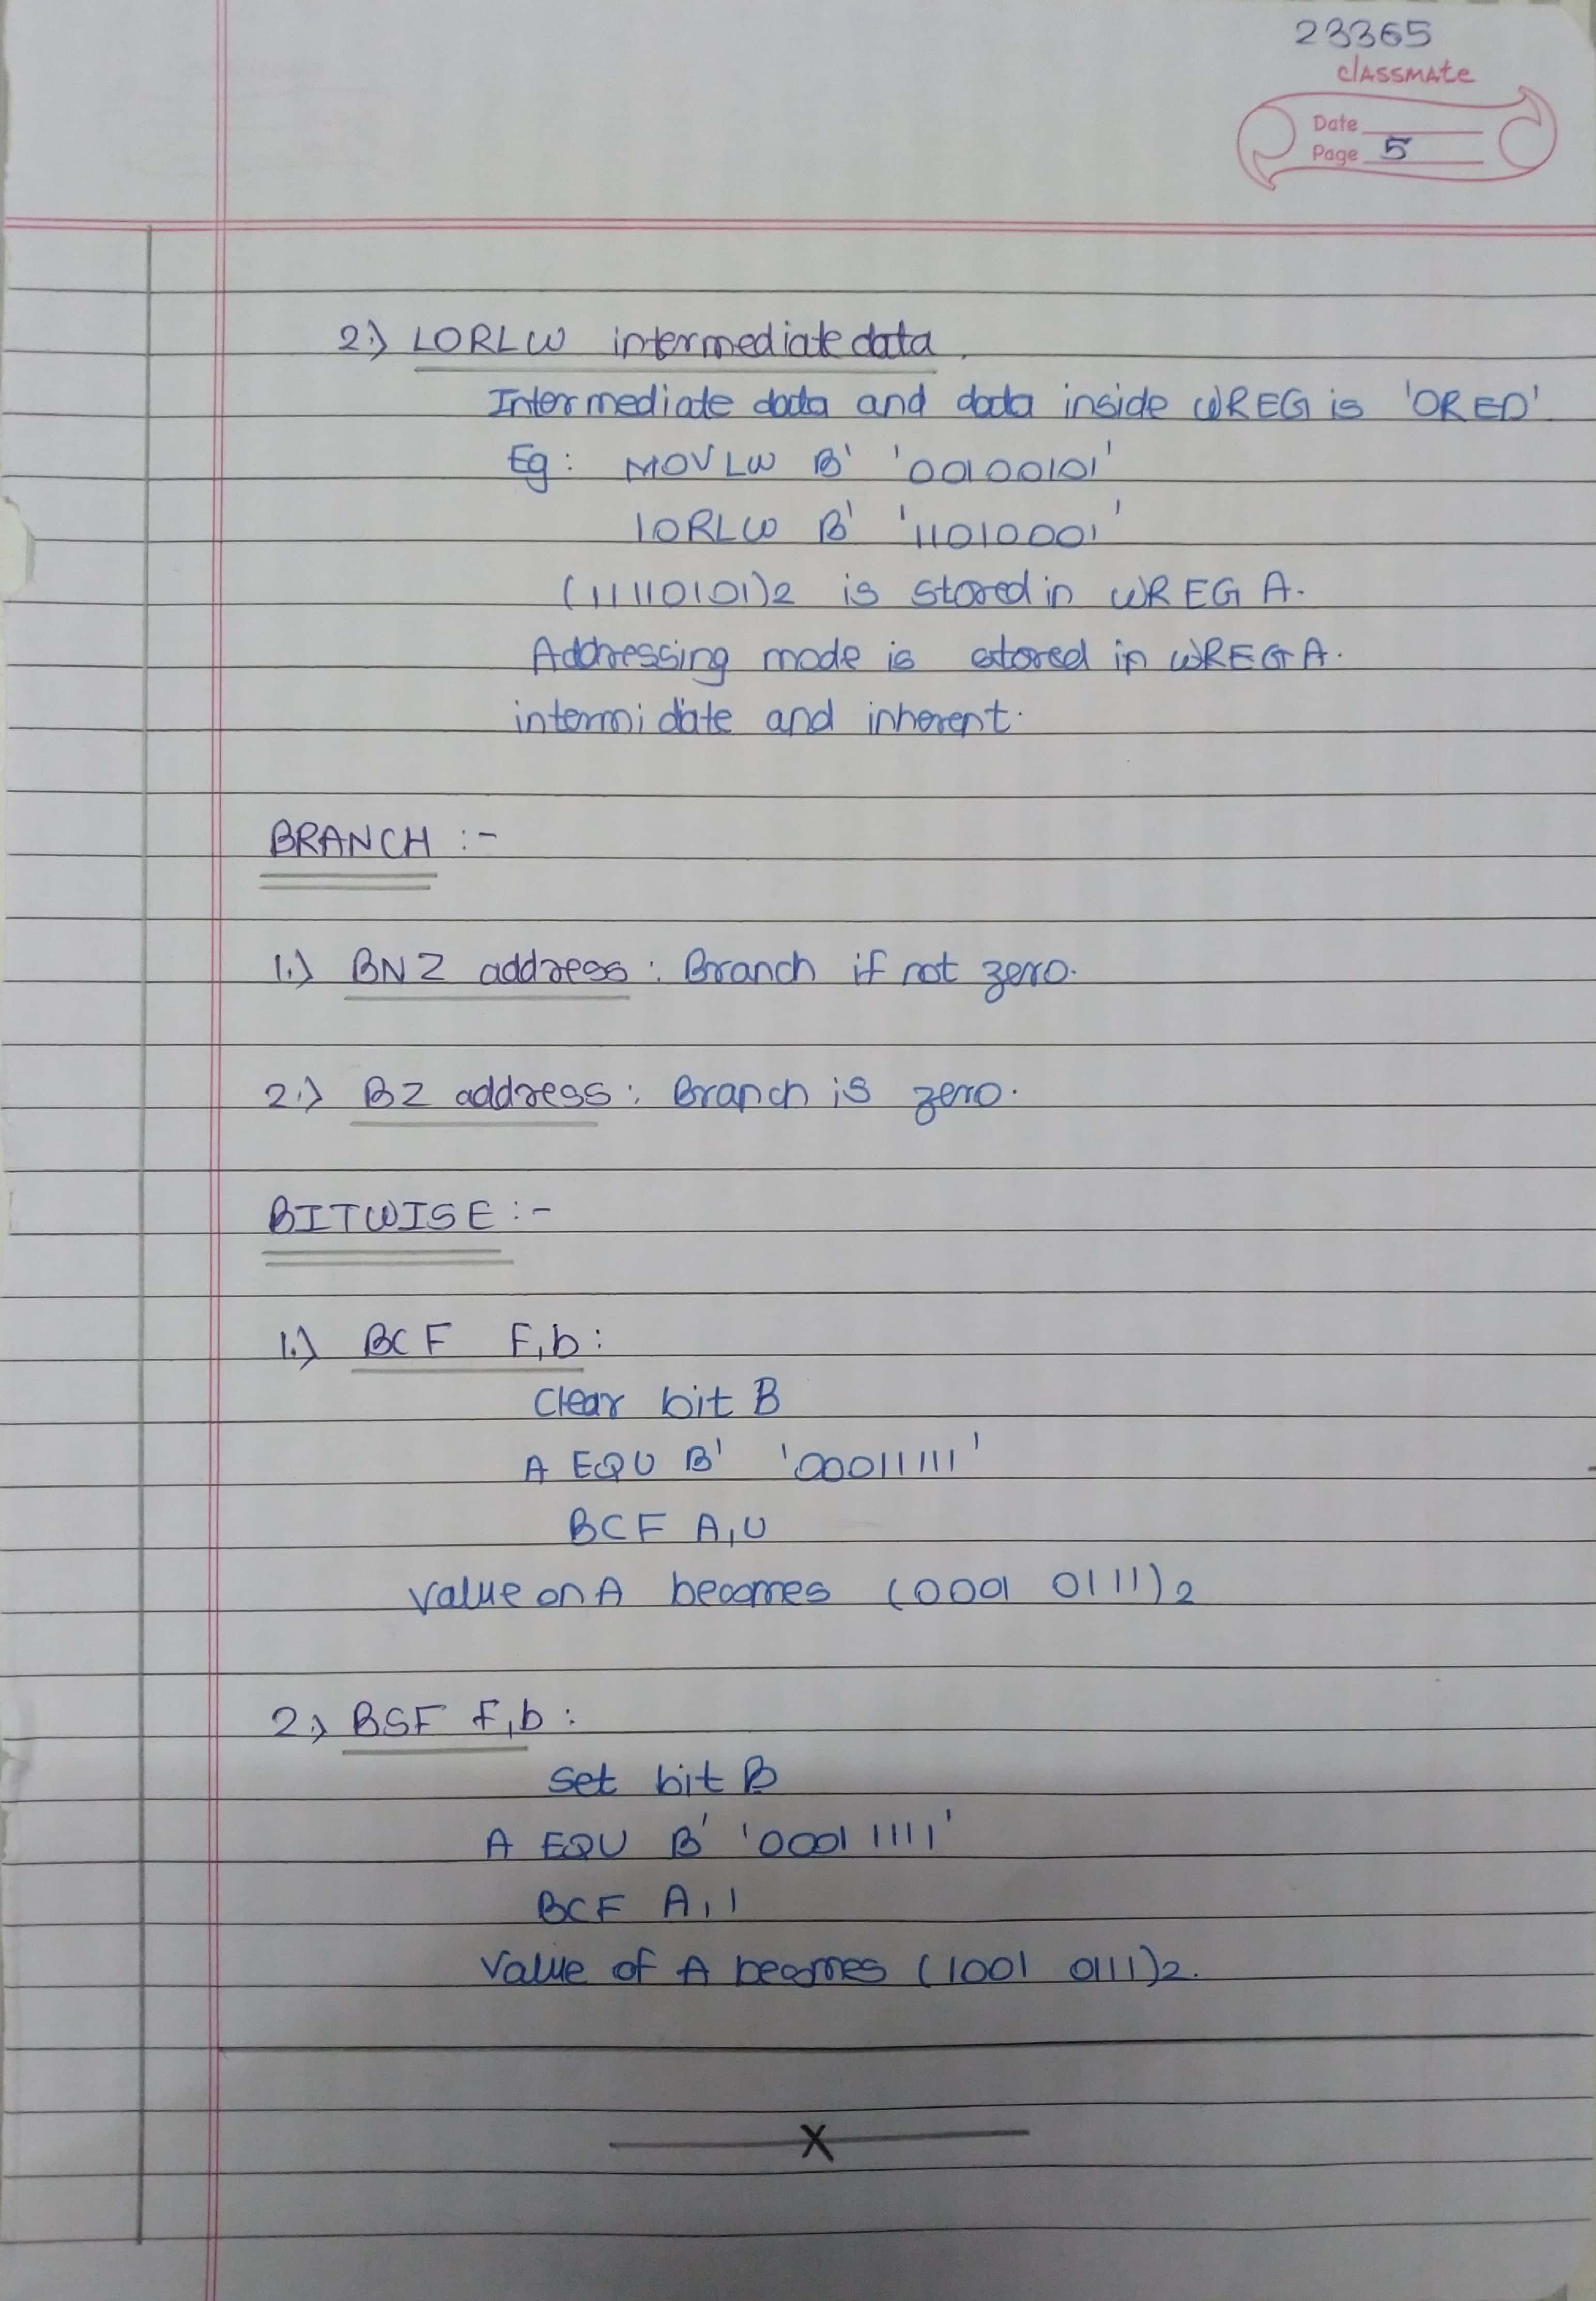 23365
classmate
Date
Page 5
2.) LORLW intermediate data.
Intermediate data and data inside WREG is 'ORED'
Eg: MOVLW B' '00100101'
IORLW B' '11010001'
(11110101)2 is stored in WREG A.
Addressing mode is stored in WREG A.
intermidiate and inherent.
BRANCH :-
1.) BNZ address : Branch if not zero.
2.) BZ address : Branch is zero.
BITWISE :-
1.) BCF F,b :
Clear bit B
A EQU B' '00011111'
BCF A,U
Value on A becomes (0001 0111)2
2.) BSF F,b :
Set bit B
A EQU B' '0001 1111'
BCF A,1
Value of A becomes (1001 0111)2.
X